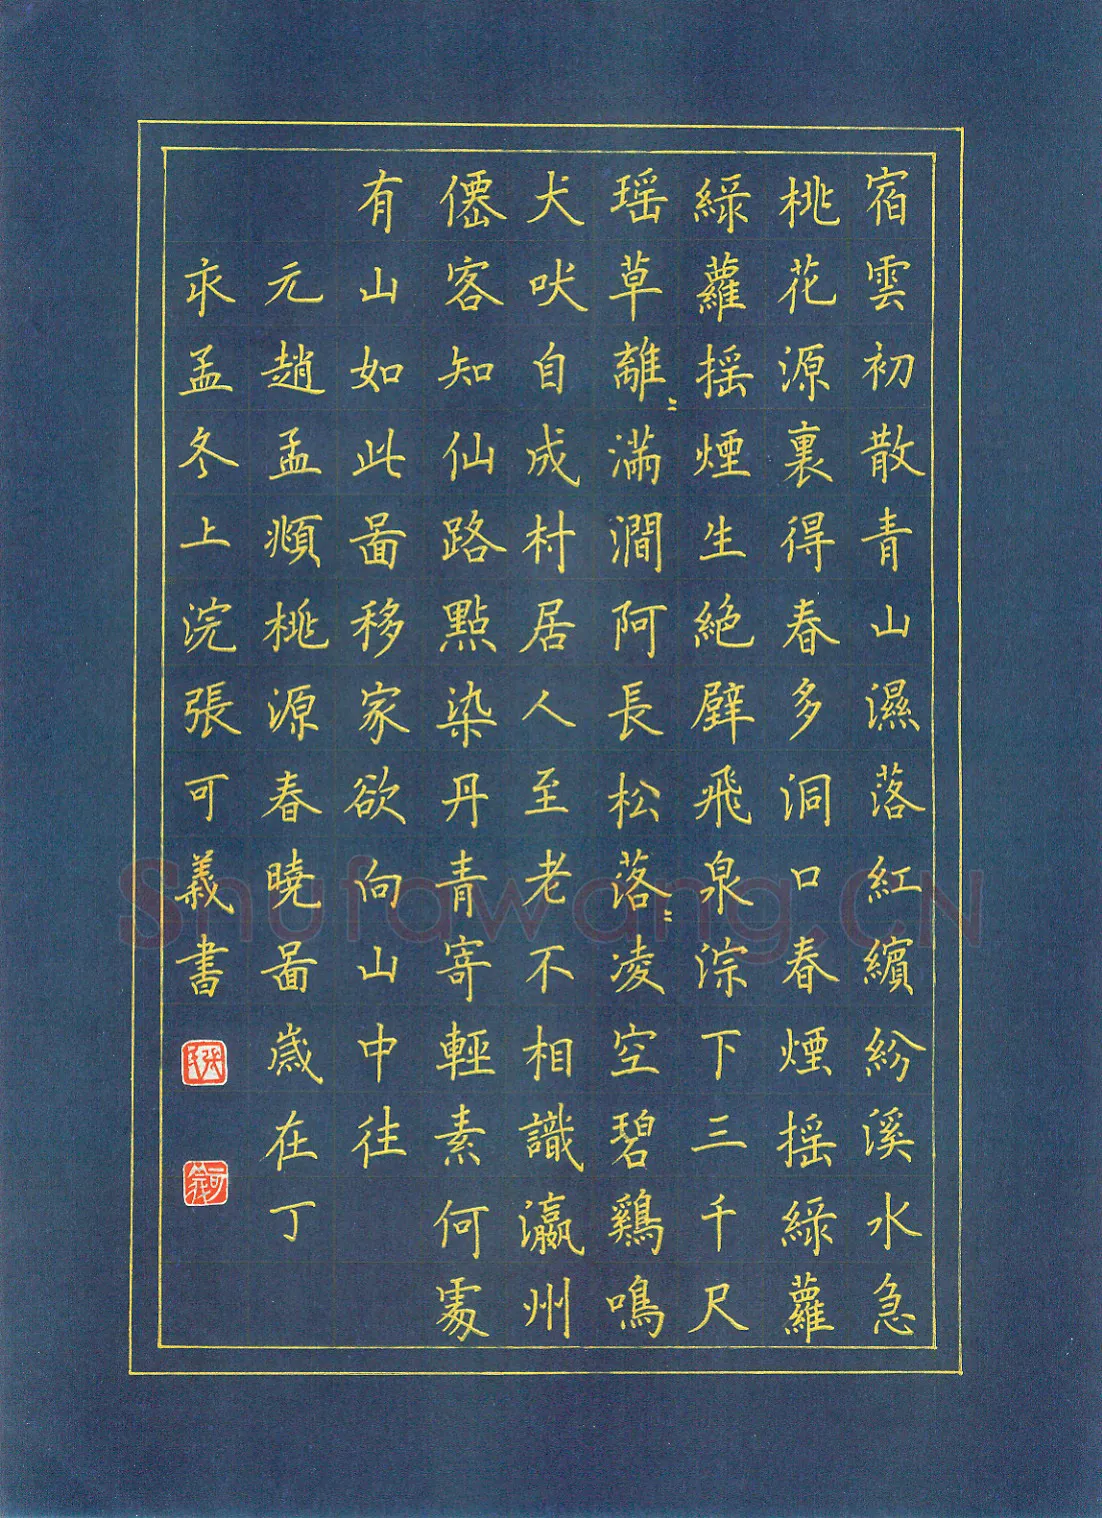 宿雲初散青山濕落紅繽紛溪水急
桃花源裏得春多洞口春煙摇綠蘿
綠蘿摇煙生絶壁飛泉淙下三千尺
瑶草離〻滿澗阿長松落〻凌空碧鷄鳴
犬吠自成村居人至老不相識瀛州
僊客知仙路點染丹青寄輕素何處
有山如此啚移家欲向山中住
元趙孟頫桃源春曉啚歳在丁
孟冬上浣張可義書
Shufawang.CN